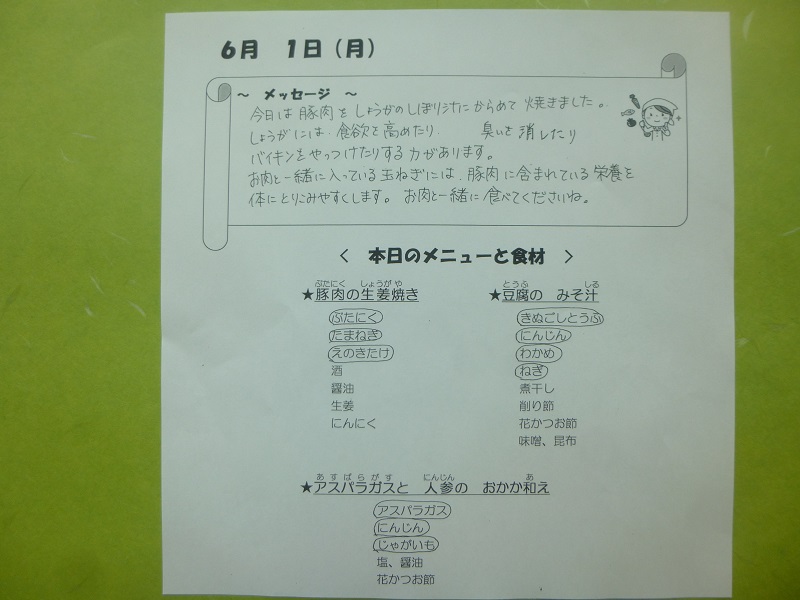 6月 1日（月）
～ メッセージ ～
今日は 豚肉を しょうがのしぼり汁にからめて 焼きました。
しょうがには、食欲を高めたり、 臭いを消したり
バイキンをやっつけたりする力があります。
お肉と一緒に入っている玉ねぎには、豚肉に含まれている栄養を
体にとりこみやすくします。 お肉と一緒に食べてくださいね。
〈 本日のメニューと食材 〉
ぶたにく しょうがや
★豚肉の生姜焼き
ぶたにく
たまねぎ
えのきたけ
酒
醤油
生姜
にんにく
とうふ しる
★豆腐の みそ汁
きぬごしとうふ
にんじん
わかめ
ねぎ
煮干し
削り節
花かつお節
味噌、昆布
あすぱらがす にんじん あ
★アスパラガスと 人参の おかか和え
アスパラガス
にんじん
じゃがいも
塩、醤油
花かつお節